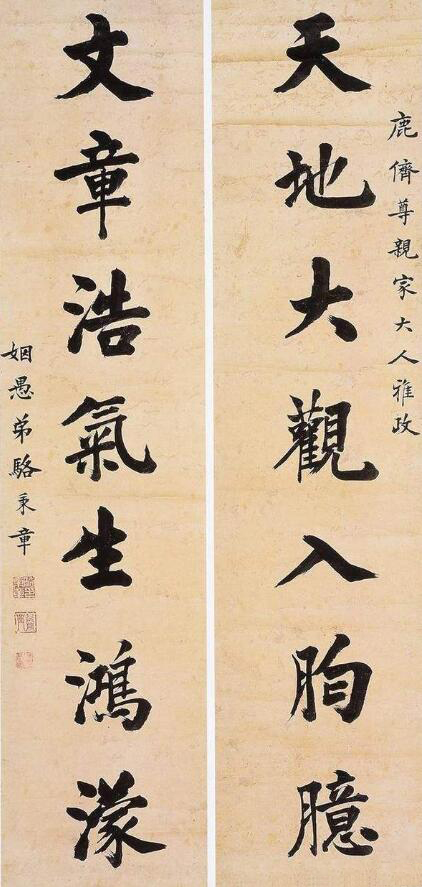 鹿儕尊親家大人雅政
天地大觀入胸臆
文章浩氣生鴻濛
姻愚弟駱秉章